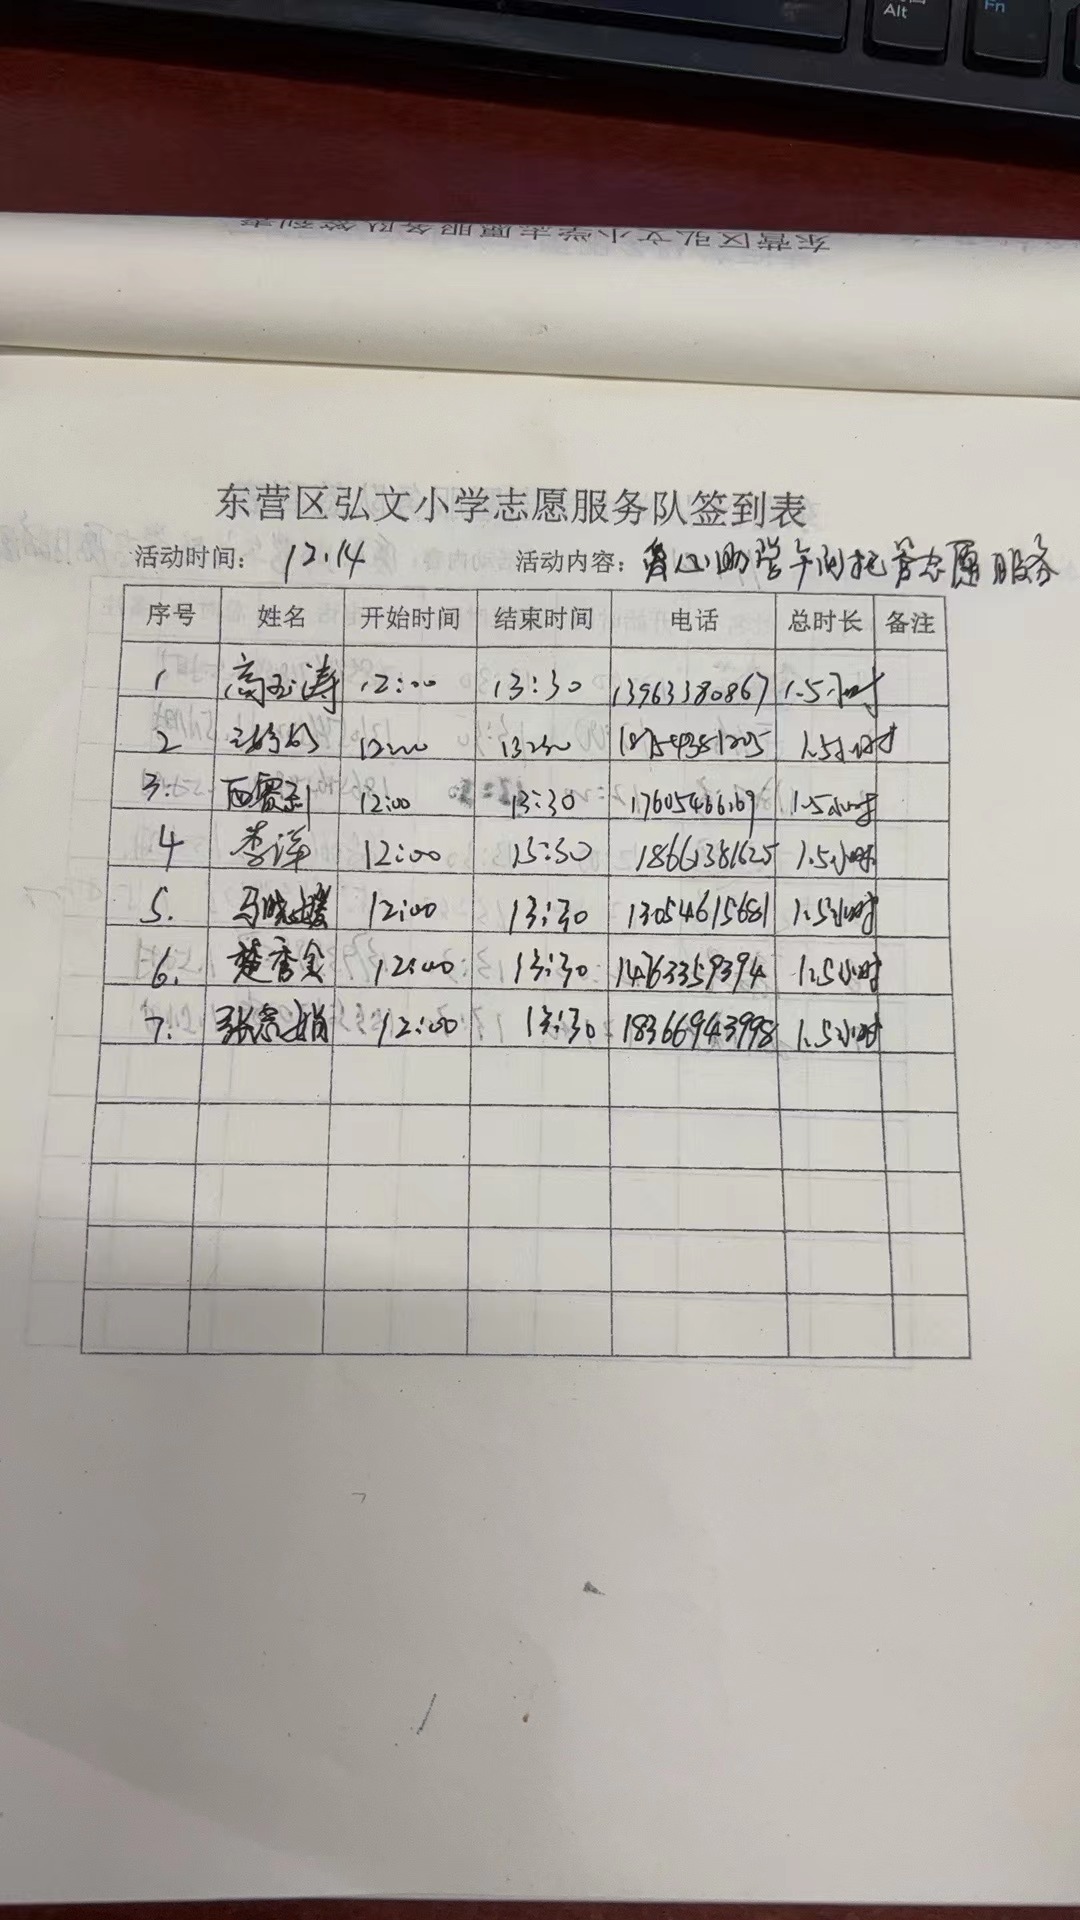 Alt
Fn
东营区弘文小学志愿服务队签到表
东营区弘文小学志愿服务队签到表
活动时间： 12.14 活动内容：爱心助学午间托管志愿服务
序号 姓名 开始时间 结束时间 电话 总时长 备注
1 高玉涛 12:00 13:30 13963380867 1.5小时
2 12:00 13:30 1.5小时
3. 12:00 13:30 1.5小时
4 李洋 12:00 13:30 18661381625 1.5小时
5. 马晓媛 12:00 13:30 13054615681 1.5小时
6. 楚秀全 12:00 13:30 14763359394 1.5小时
7. 12:00 13:30 18366943998 1.5小时